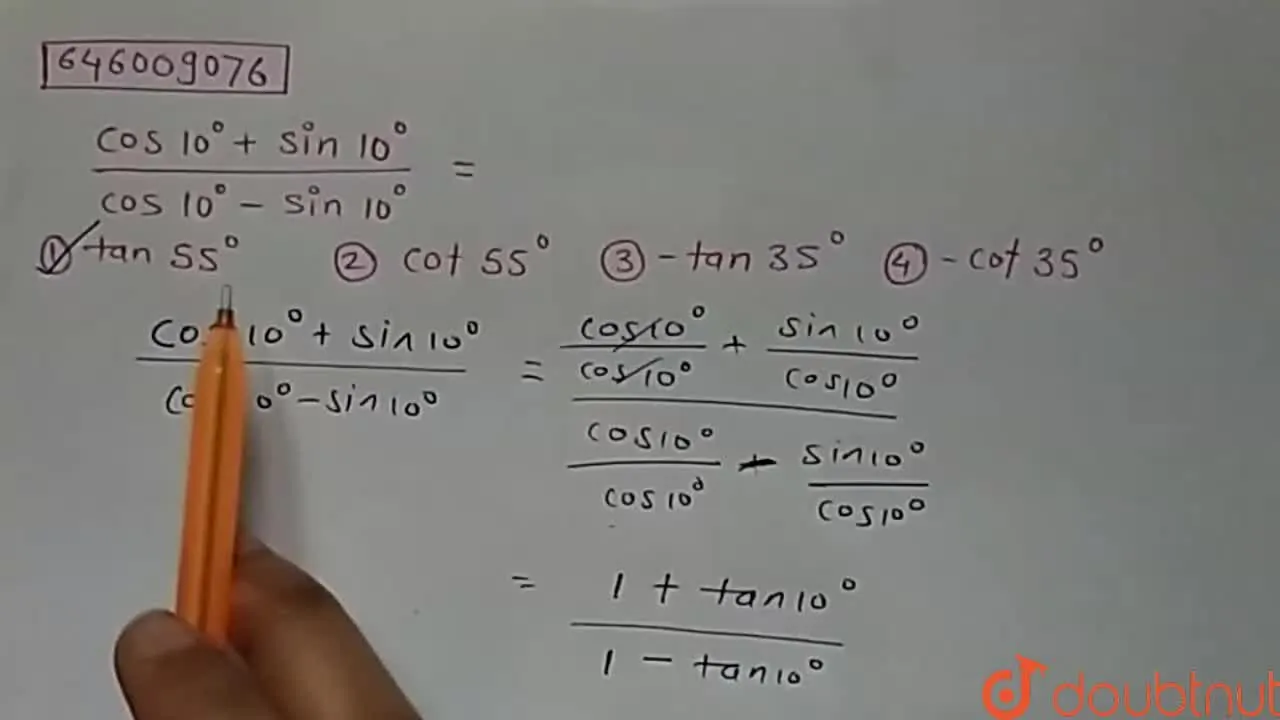 646009076
cos 10° + sin 10°
=
cos 10° - sin 10°
① tan 55° ② cot 55° ③ -tan 35° ④ -cot 35°
10° + sin 10° = cos10° / cos10° + sin 10° / cos10°
0° - sin 10°
cos10° / cos10° - sin10° / cos10°
= 1 + tan10°
1 - tan10°
doubtnut